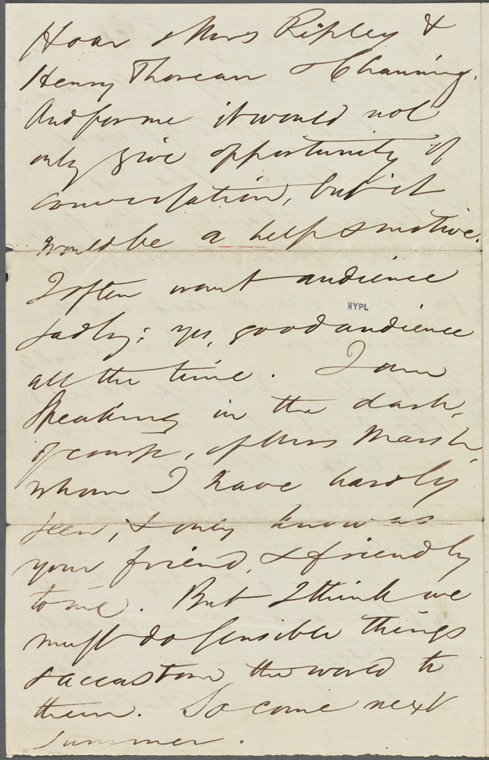 Hoar & Mrs Ripley &
Henry Thoreau & Channing.
And for me it would not
only give opportunity of
conversation, but it
would be a help & motive.
I often want audience
NYPL
sadly; yes, good audience
all the time. I am
speaking in the dark,
of course, of Miss Marsh
whom I have hardly
seen, & only know as
your friend, & friendly
to me. But I think we
must do sensible things
& accustom the world to
them. So come next
summer.